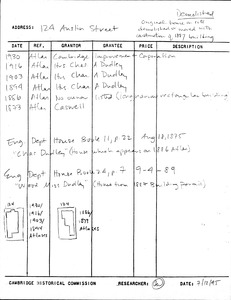 Demolished
Original house on site
demolished or moved with
construction of 1887 building
ADDRESS: 124 Austin Street
DATE REF. GRANTOR GRANTEE PRICE DESCRIPTION
1930 Atlas Cambridge Improvement Corporation
1916 Atlas Hrs Chas A Dudley
1903 Atlas Hrs Chas A Dudley
1894 Atlas Hrs Chas A Dudley
1886 Atlas No owner listed building
1873 Atlas Caswell
Eng. Dept House Book 11, p. 22 Aug 1875
"Chas Dudley" (House which appears on 1886 Atlas)
Eng. Dept House Book 24, p. 7 9-4-89
"Wood Miss Dudley" (House from 1887 Building Permit)
124
1930/
1916/
1903/
1894
Atlases
124
1886/
1873
Atlases
CAMBRIDGE HISTORICAL COMMISSION RESEARCHER: DATE: 7/10/95